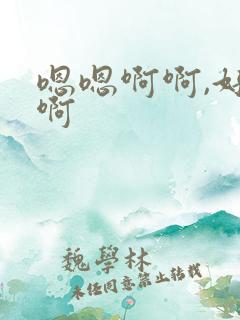 嗯嗯啊啊,好
啊
魏學林
未经同意禁止转载